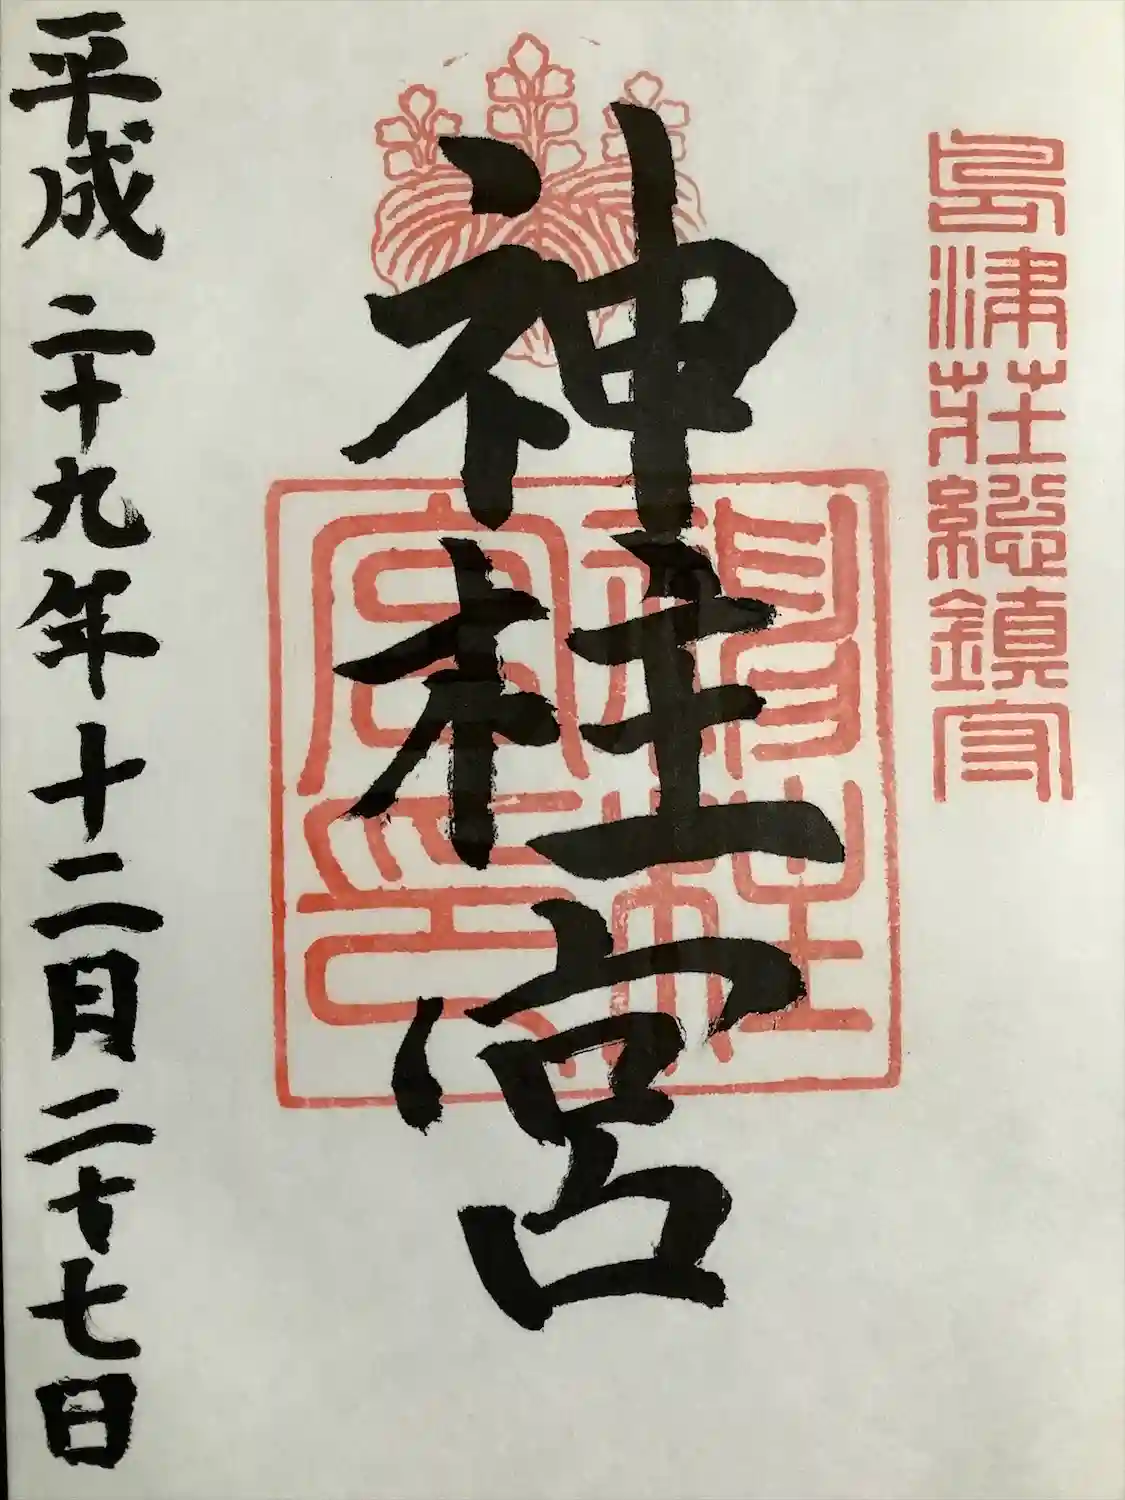 島津荘総鎮守
神柱宮
神柱宮印
平成二十九年十二月二十七日